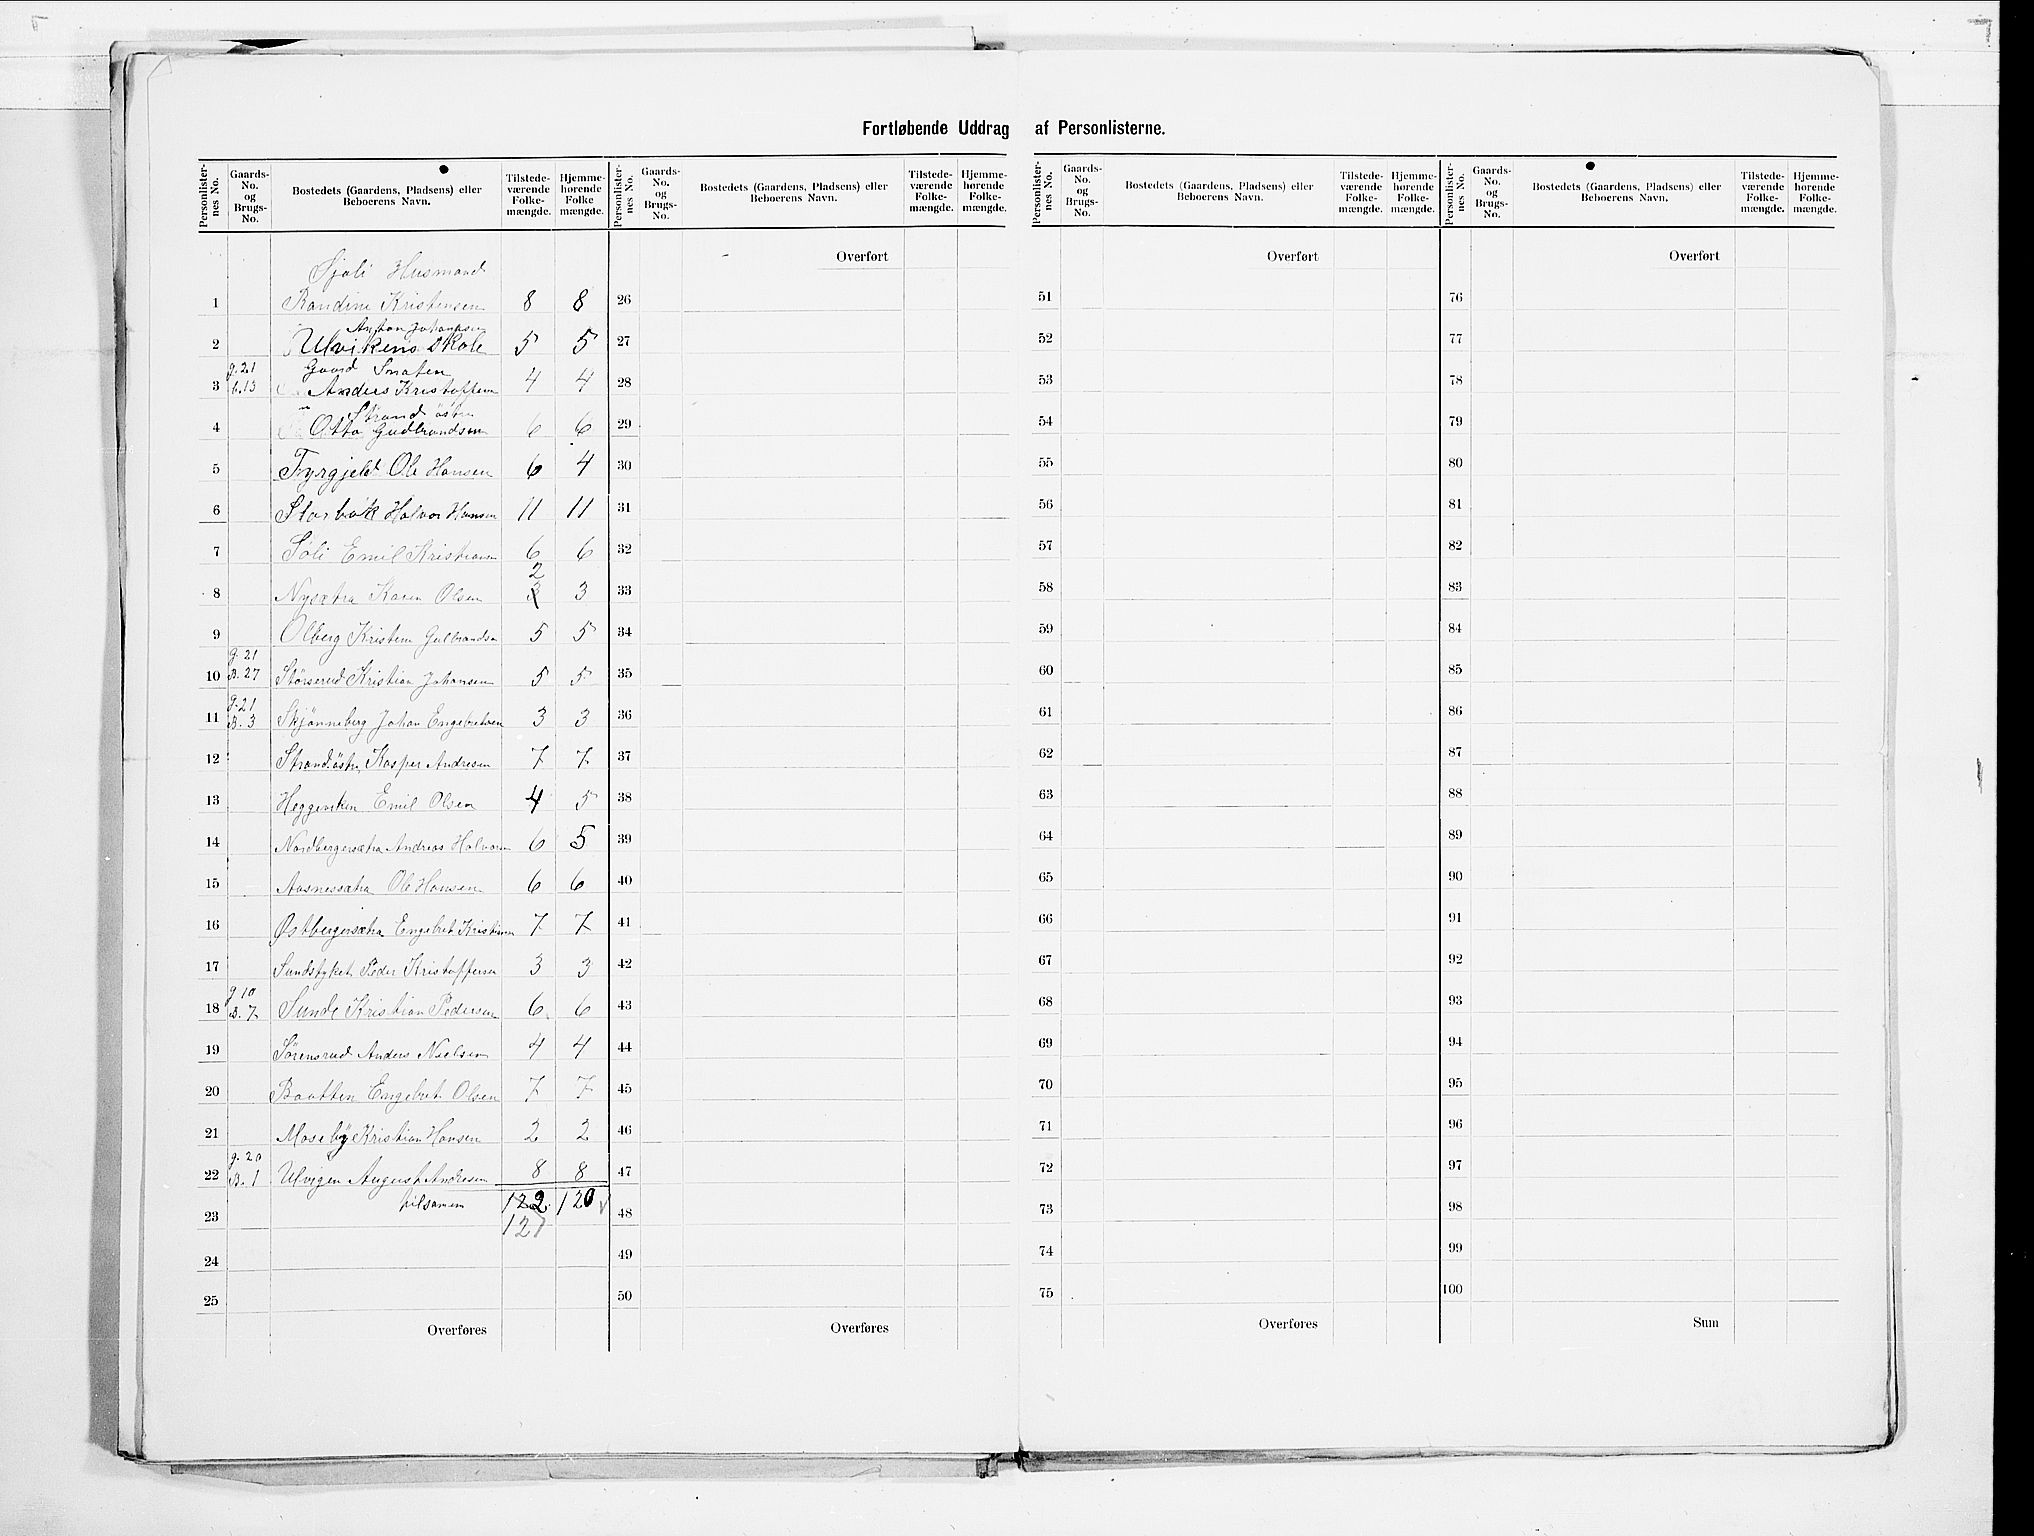 Fortløbende Uddrag af Personlisterne.
Personlisternes No. Gaards-No. og Brugs-No. Bostedets (Gaardens, Pladsens) eller Beboerens Navn. Tilstedeværende Folkemængde. Hjemmehørende Folkemængde.
Personlisternes No. Gaards-No. og Brugs-No. Bostedets (Gaardens, Pladsens) eller Beboerens Navn. Tilstedeværende Folkemængde. Hjemmehørende Folkemængde.
Personlisternes No. Gaards-No. og Brugs-No. Bostedets (Gaardens, Pladsens) eller Beboerens Navn. Tilstedeværende Folkemængde. Hjemmehørende Folkemængde.
Personlisternes No. Gaards-No. og Brugs-No. Bostedets (Gaardens, Pladsens) eller Beboerens Navn. Tilstedeværende Folkemængde. Hjemmehørende Folkemængde.
Sjøli Husmand
1 Randine Kristensen 8 8
Anton Johansen
2 Ulvikens Skole 5 5
g. 21 Gaard Snaten
3 b. 13 Anders Kristoffersen 4 4
Strand östre
4 Otto Gudbrandsen 6 6
5 Fyrgjeld Ole Hansen 6 4
6 Storbæk Halvor Hansen 11 11
7 Söli Emil Kristiansen 6 6
2
8 Nysætra Karen Olsen 3 3
9 Olberg Kristian Gulbrandsen 5 5
g. 21
10 B. 27 Störserud Kristian Johansen 5 5
g. 21
11 B. 3 Skjønneberg Johan Engebretsen 3 3
12 Strand östre Kasper Andresen 7 7
13 Heggeviken Emil Olsen 4 5
14 Nordbergersætra Andreas Halvorsen 6 5
15 Aasnessætra Ole Hansen 6 6
16 Østbergersætra Engebret Kristiansen 7 7
17 Sundstyket Peder Kristoffersen 3 3
g 10
18 B. 7 Sunde Kristian Pedersen 6 6
19 Sörensrud Anders Nielsen 4 4
20 Baatten Engebret Olsen 7 7
21 Moseby Kristian Hansen 2 2
g. 20
22 B. 1 Ulvigen August Andresen 8 8
tilsamen 122 120
23 121
24
25
Overføres
Overført
26
27
28
29
30
31
32
33
34
35
36
37
38
39
40
41
42
43
44
45
46
47
48
49
50
Overføres
Overført
51
52
53
54
55
56
57
58
59
60
61
62
63
64
65
66
67
68
69
70
71
72
73
74
75
Overføres
Overført
76
77
78
79
80
81
82
83
84
85
86
87
88
89
90
91
92
93
94
95
96
97
98
99
100
Sum